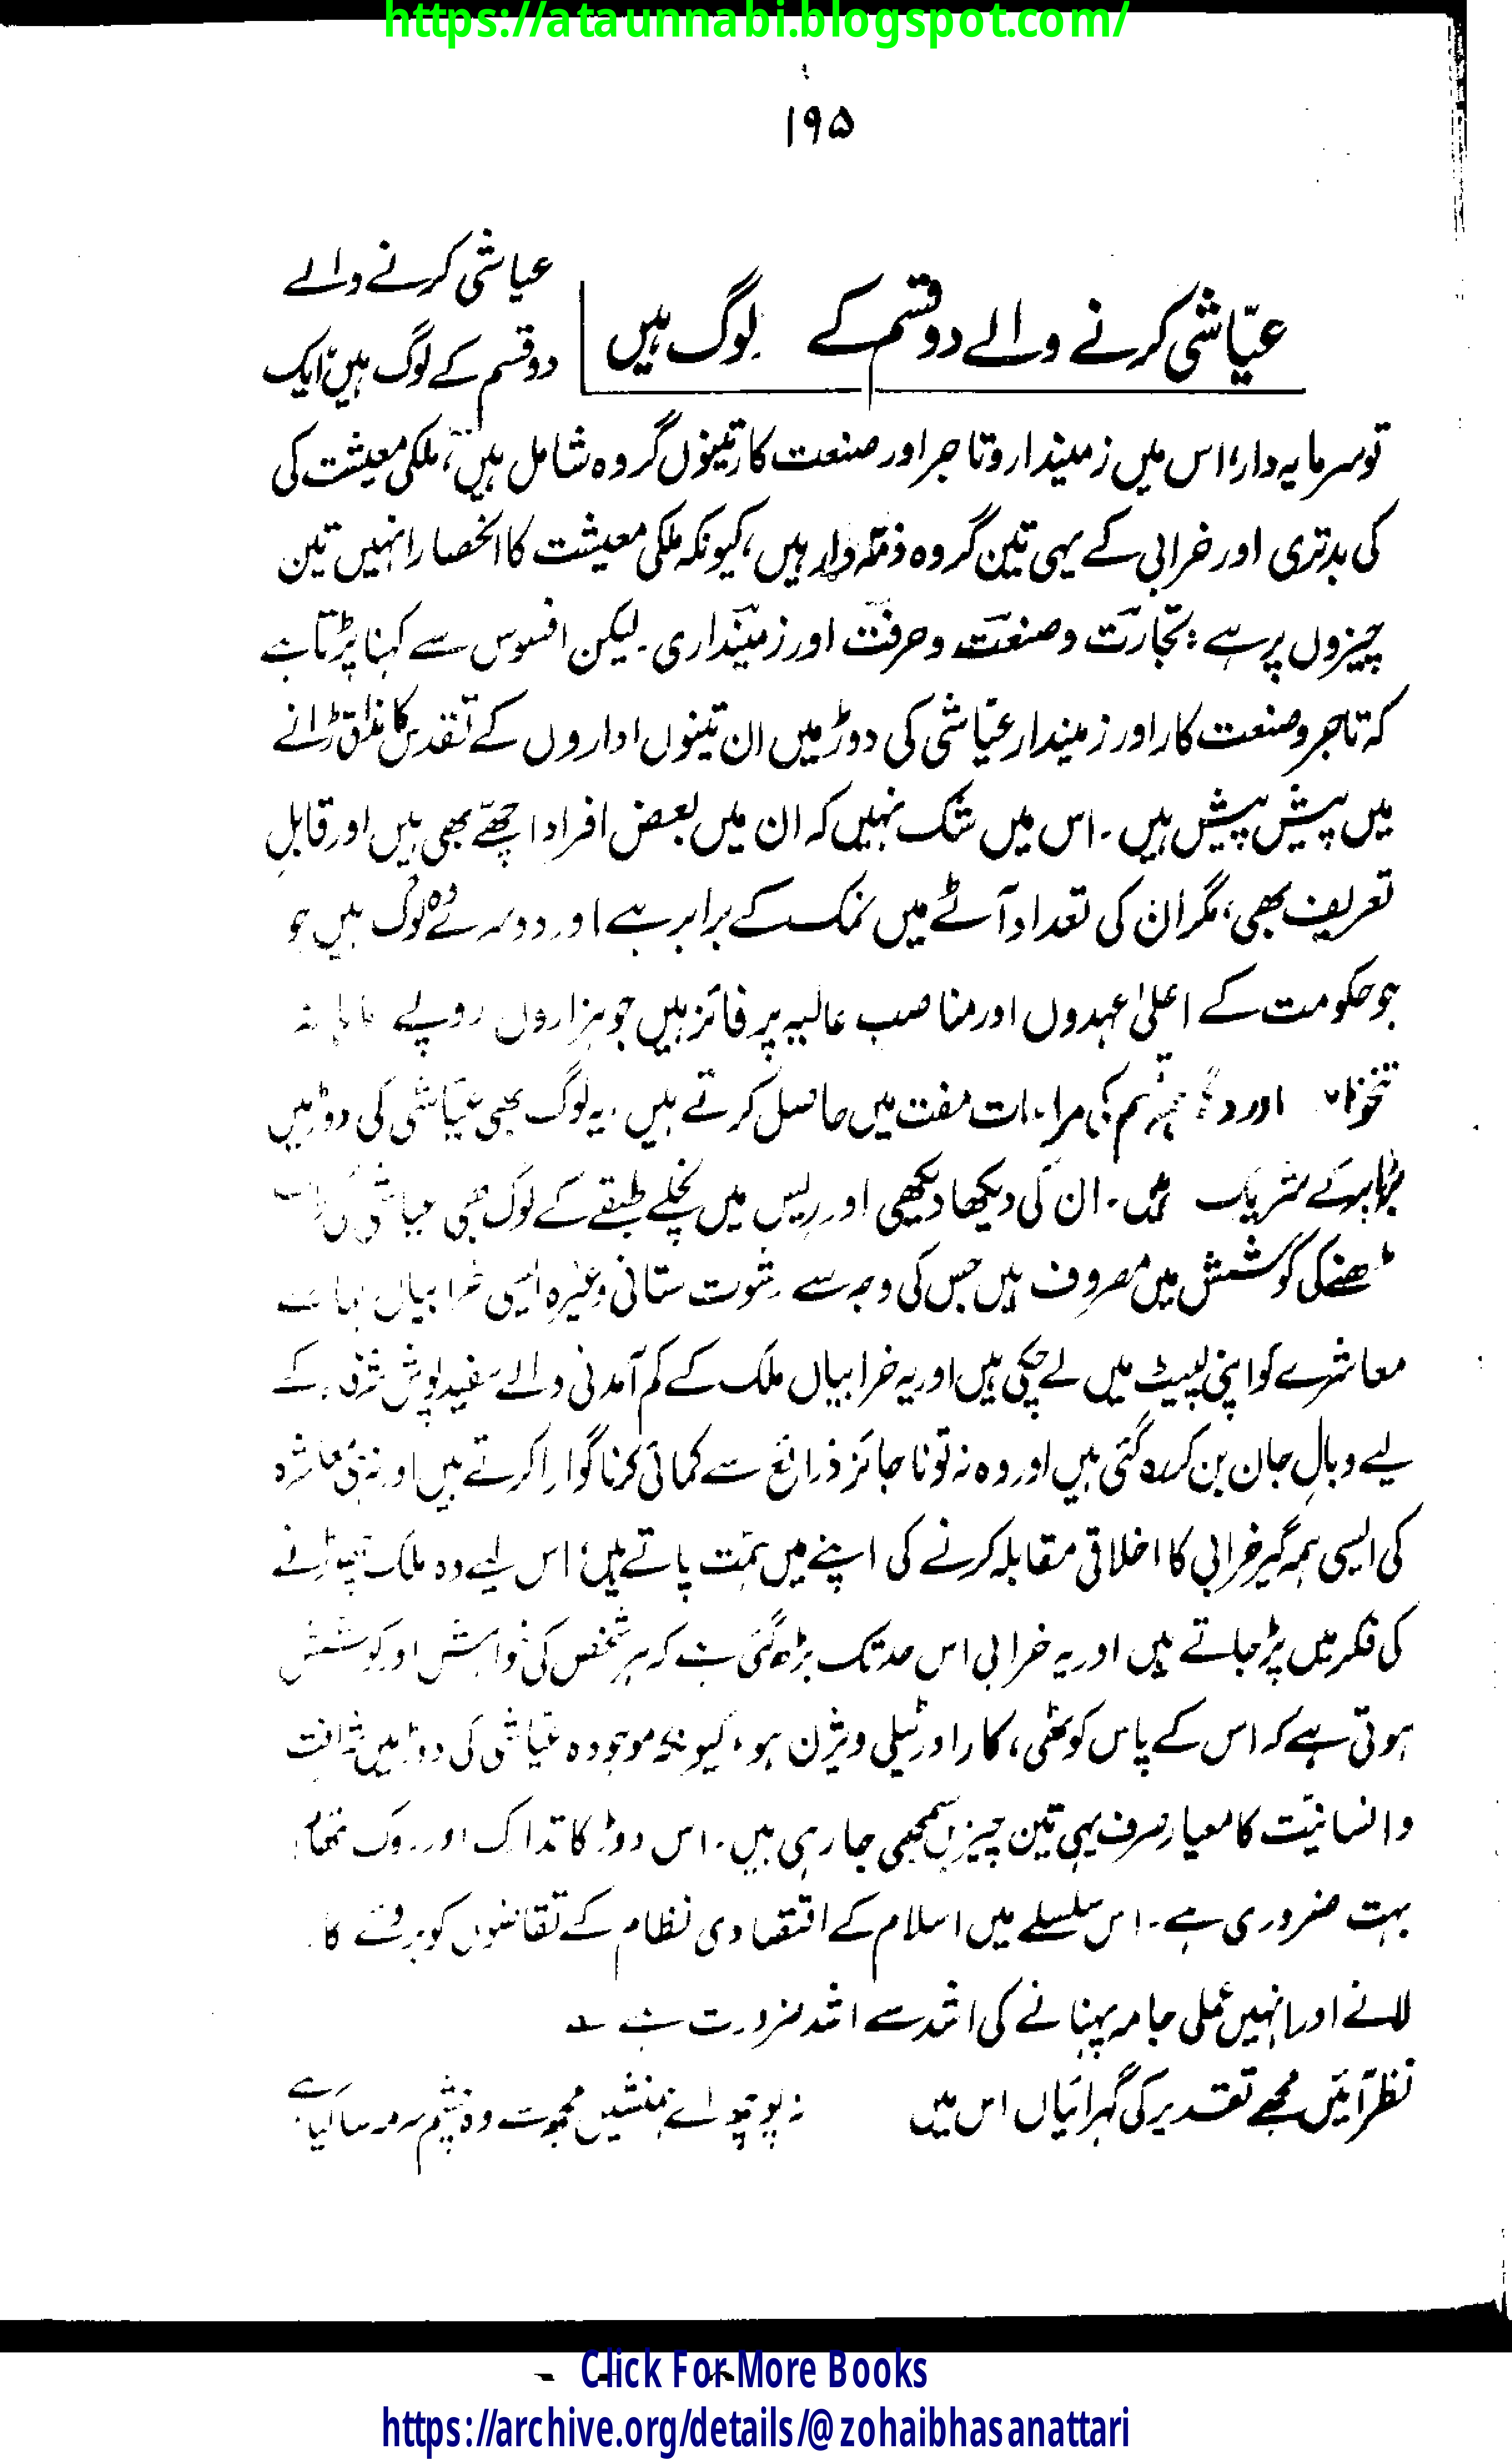 https://ataunnabi.blogspot.com/
۱۹۵
عیّاشی کرنے والے دو قسم کے لوگ ہیں
عیاشی کرنے والے
دو قسم کے لوگ ہیں، ایک
تو سرمایہ دار، اس میں زمیندار و تاجر اور صنعت کار تینوں گروہ شامل ہیں، ملکی معیشت کی
کی بدتری اور خرابی کے یہی تین گروہ ذمّہ دار ہیں، کیونکہ ملکی معیشت کا انحصار انہیں تین
چیزوں پر ہے: تجارت و صنعت و حرفت اور زمینداری۔ لیکن افسوس سے کہنا پڑتا ہے
کہ تاجر و صنعت کار اور زمیندار عیّاشی کی دوڑ میں ان تینوں اداروں کے تقدس کا مذاق اڑانے
میں پیش پیش ہیں۔ اس میں شک نہیں کہ ان میں بعض افراد اچھّے بھی ہیں اور قابلِ
تعریف بھی، مگر ان کی تعداد آٹے میں نمک کے برابر ہے اور دوسرے وُہ لوگ ہیں جو
جو حکومت کے اعلیٰ عہدوں اور مناصب عالیہ پر فائز ہیں جو ہزاروں روپے
تنخواہ اور کی مراعات مفت میں حاصل کرتے ہیں، یہ لوگ بھی عیّاشی کی دوڑ میں
برابر کے شریک ہیں۔ ان کی دیکھا دیکھی اور ریس میں نچلے طبقے کے لوگ بھی عیاشی
کی کوشش میں مصروف ہیں جس کی وجہ سے رشوت ستانی وغیرہ ایسی خرابیاں ہمارے
معاشرے کو اپنی لپیٹ میں لے چکی ہیں اور یہ خرابیاں ملک کے کم آمدنی والے سفید پوش شرفاء کے
لیے وبالِ جان بن کر رہ گئی ہیں اور وہ نہ تو ناجائز ذرائع سے کمائی کرنا گوارا کرتے ہیں اور نہ ہی معاشرہ
کی ایسی ہمہ گیر خرابی کا اخلاقی مقابلہ کرنے کی اپنے میں ہمّت پاتے ہیں؛ اس لیے وہ ملک چھوڑنے
کی فکر میں پڑ جاتے ہیں اور یہ خرابی اس حد تک بڑھ گئی ہے کہ ہر شخص کی خواہش اور کوشش
ہوتی ہے کہ اس کے پاس کوٹھی، کار اور ٹیلی ویژن ہو، کیونکہ موجودہ عیّاشی کی دوڑ میں شرافت
و انسانیّت کا معیار صرف یہی تین چیزیں سمجھی جا رہی ہیں۔ اس دوڑ کا تدارک اور روک تھام
بہت ضروری ہے۔ اس سلسلے میں اسلام کے اقتصادی نظام کے تقاضوں کو بروئے کار
لانے اور انہیں عملی جامہ پہنانے کی اشد سے اشد ضرورت ہے
نظر آئیں مجھے تقدیر کی گہرائیاں اس میں نہ پوچھو اے ہمنشیں مجھ سے وہ چشم سرمہ سا کیا ہے
Click For More Books
https://archive.org/details/@zohaibhasanattari